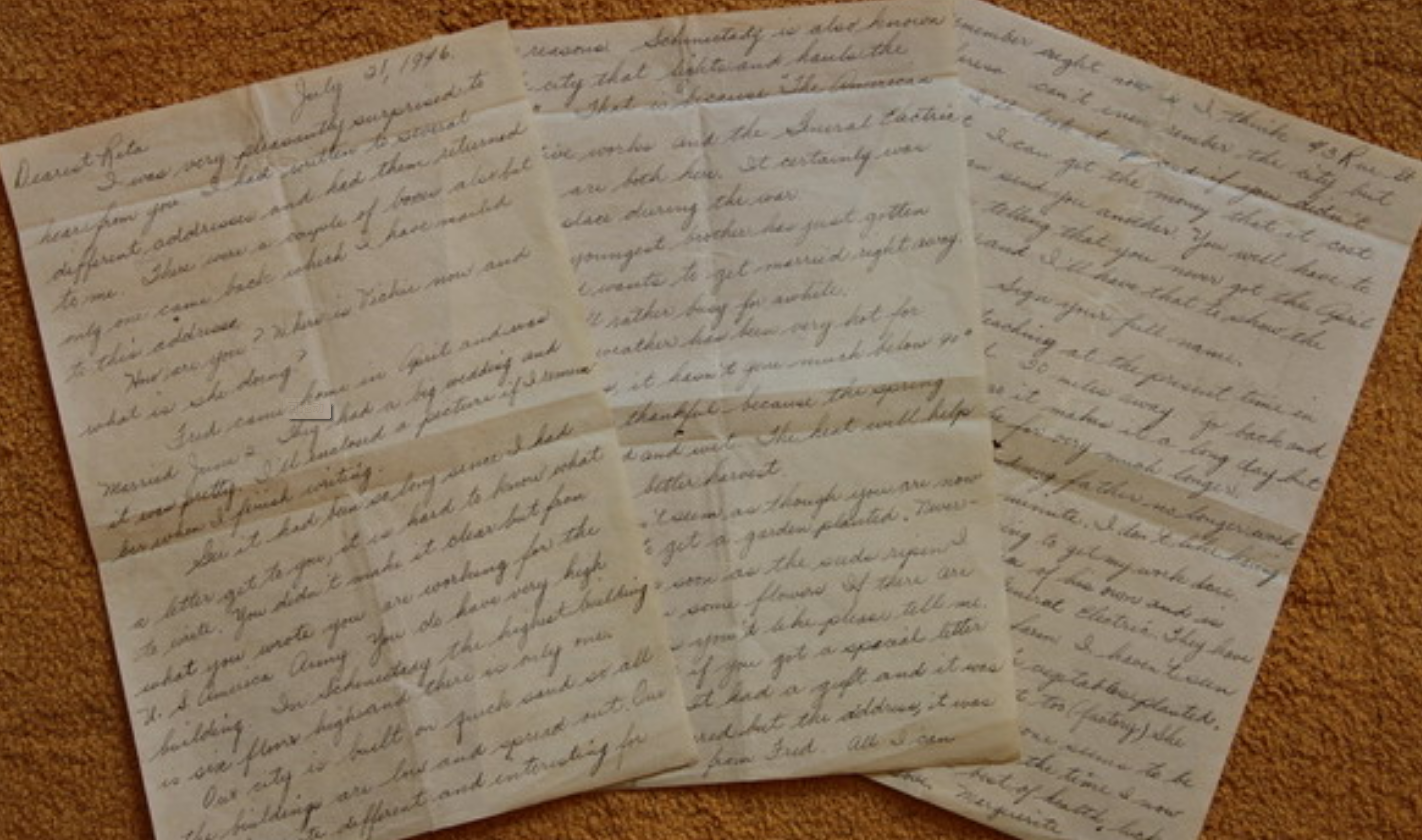 July 21, 1946.
Dearest Rita
I was very pleasantly surprised to
hear from you. I had written to several
different addresses and had them returned
to me. There were a couple of boxes also but
only one came back which I have mailed
to this address.
How are you? Where is Vickie now and
what is she doing?
Fred came home in April and was
married June 2. They had a big wedding and
it was pretty. I'll enclosed a picture if I remem
ber when I finish writing.
Gee it had been so long since I had
a letter get to you, it is hard to know what
to write. You didn't make it clear but from
what you wrote you are working for the
U. S America Army. You do have very high
building. In Schnectady the highest building
is six floors high and there is only one.
Our city is built on quick sand so all
the buildings are low and spread out. Our
different and interesting for
reasons. Schnectady is also known
city that lights and hauls the
". That is because "The American
tive works and the General Electric
are both here. It certainly was
place during the war.
youngest brother has just gotten
wants to get married right away.
rather busy for awhile.
weather has been very hot for
it hasn't gone much below 90°
thankful because the spring
and wet. The heat will help
better harvest.
't seem as though you are now
get a garden planted. Never-
soon as the seeds ripen I
some flowers. If there are
you'd like please tell me.
if you got a special letter
It had a gift and it was
red but the address, it was
from Fred. All I can
remember right now is I think 43 Rue
can't even rember the city but
I'll look it and if you didn't
I can get the money that it cost
send you another. You will have to
telling that you never got this April
and I'll have that to show the
Sign your full name.
teaching at the present time in
30 miles away. Go back and
it makes it a long day but
for very much longer.
my father no longer work
minute. I don't like having
ing to get my work done.
of his own and is
General Electric. They have
farm. I haven't seen
vegetables planted.
too (factory) She
one seems to be
the time is now
best of health, luck
Love, Marguerite